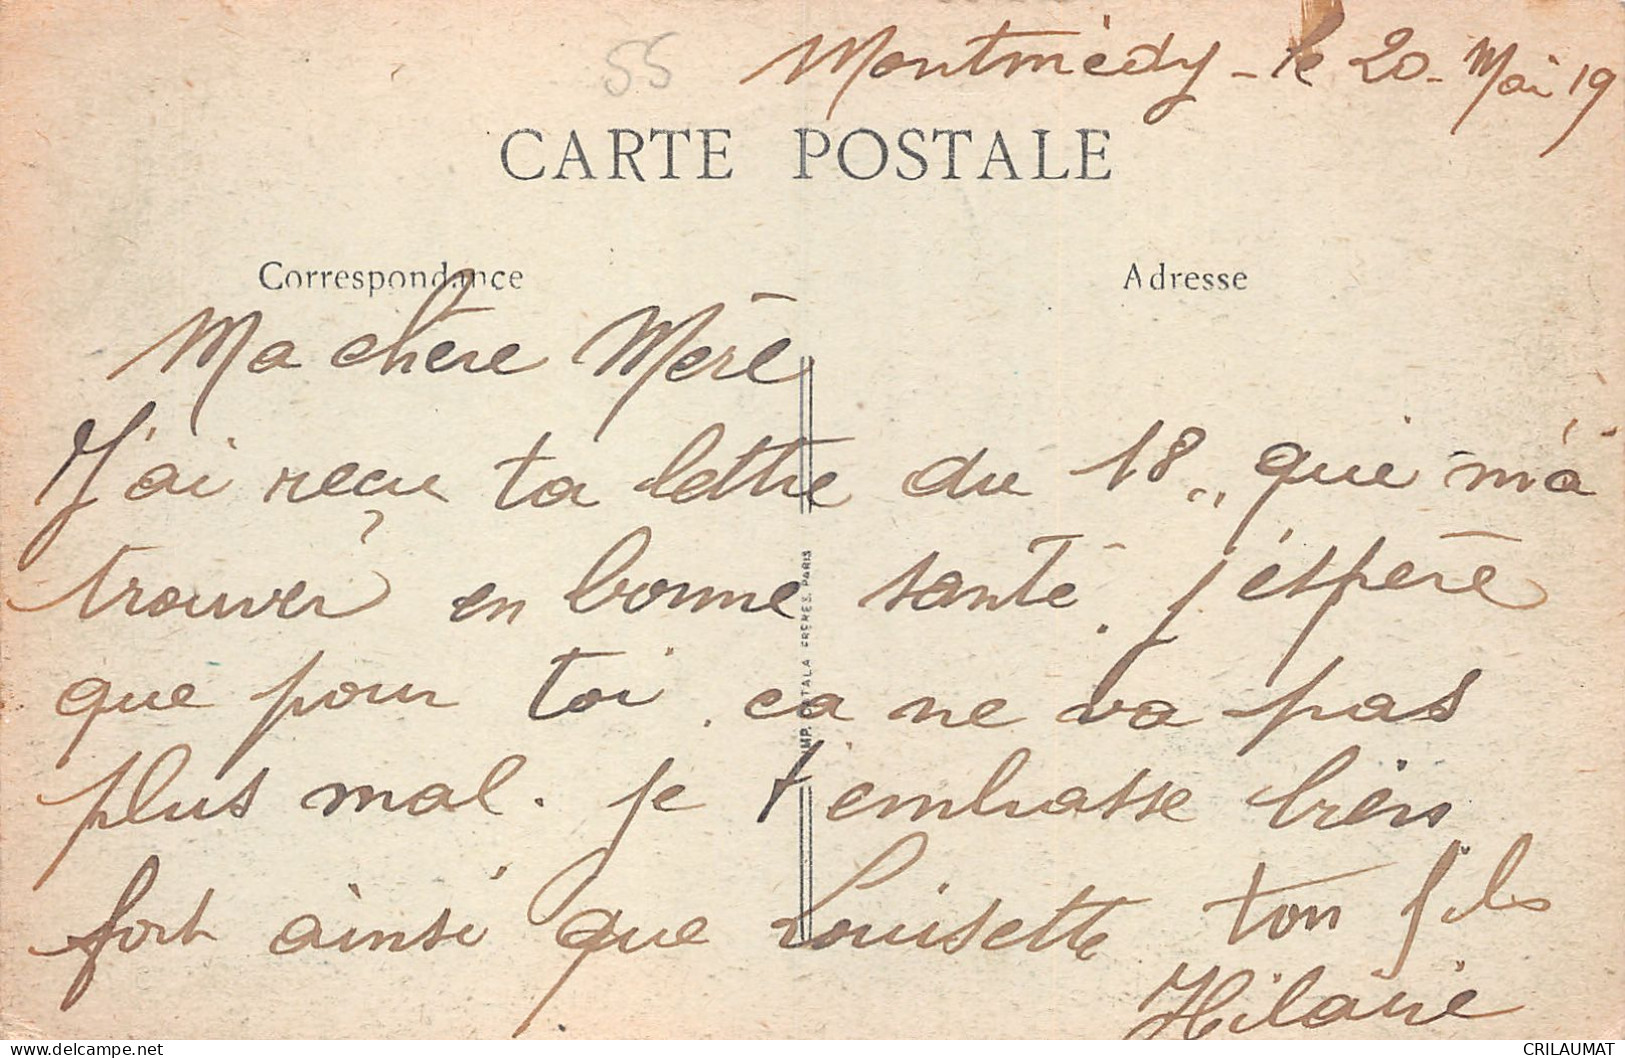 55
Montmédy - le 20 - Mai 19
CARTE POSTALE
Correspondance
Adresse
Ma chère Mère
J'ai reçu ta lettre du 18 „ qui m'a
trouver en bonne santé. j'éspère
que pour toi. ca ne va pas
plus mal. je t'embrasse bien
fort ainsi que Louisette ton fils
Hilaire
IMP. CATALA FRERES. PARIS
CRILAUMAT